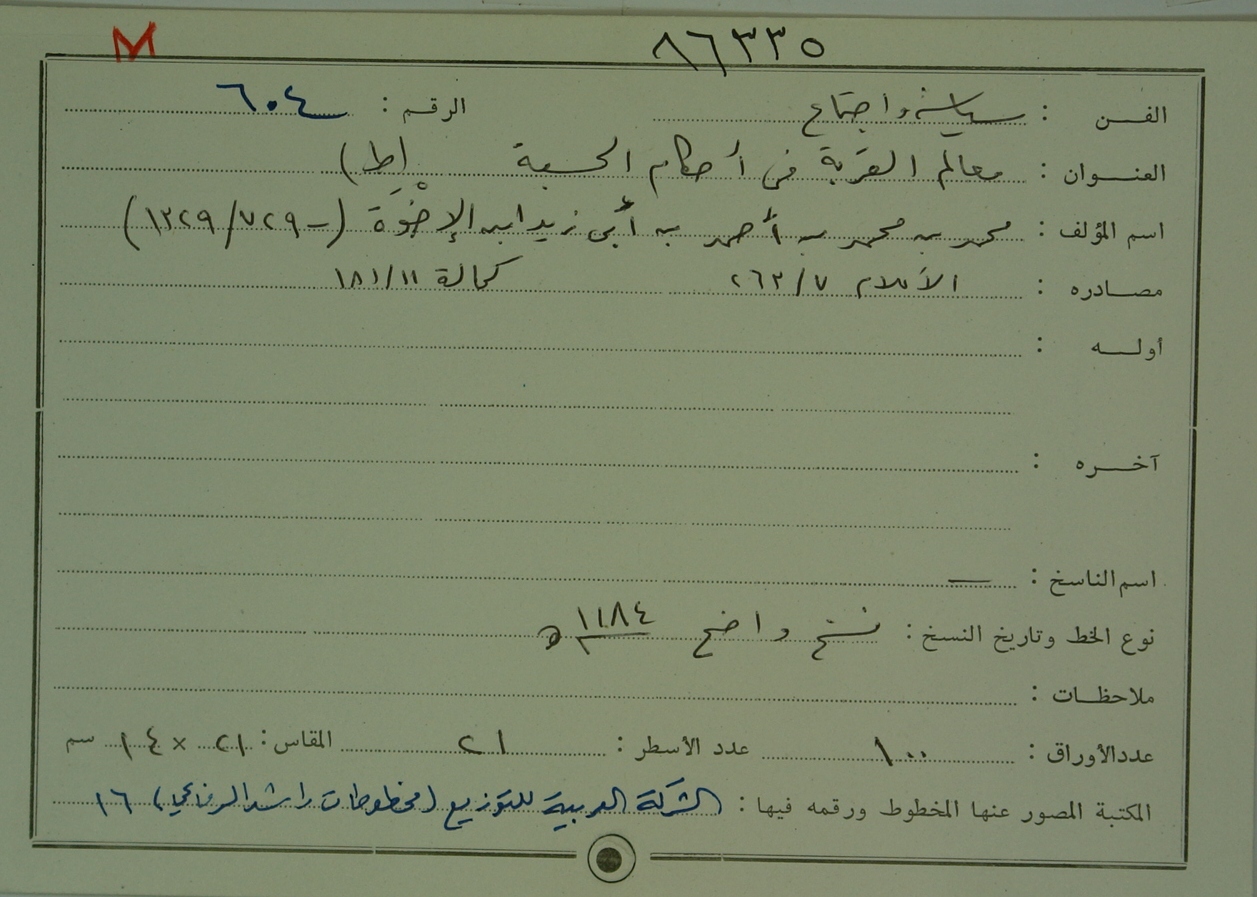 M ٨٦٣٣٥
الفن : سياسة واجتماع الرقم : ٦٠٤
العنوان : معالم القربة في أحكام الحسبة (ط)
اسم المؤلف : محمد بن محمد بن أحمد بن أبي زيد ابن الإخْوَة (- ٧٢٩/١٣٢٩)
مصادره : الأعلام ٢٦٣/٧ كحالة ١٨١/١١
أوله :
آخره :
اسم الناسخ : —
نوع الخط وتاريخ النسخ : نسخ واضح ١١٨٤ هـ
ملاحظات :
عدد الأوراق : ١٠٠ عدد الأسطر : ٢١ المقاس : ٢١ × ١٤ سم
المكتبة المصور عنها المخطوط ورقمه فيها : الشركة العربية للتوزيع (مخطوطات راشد الرفاعي) ١٦